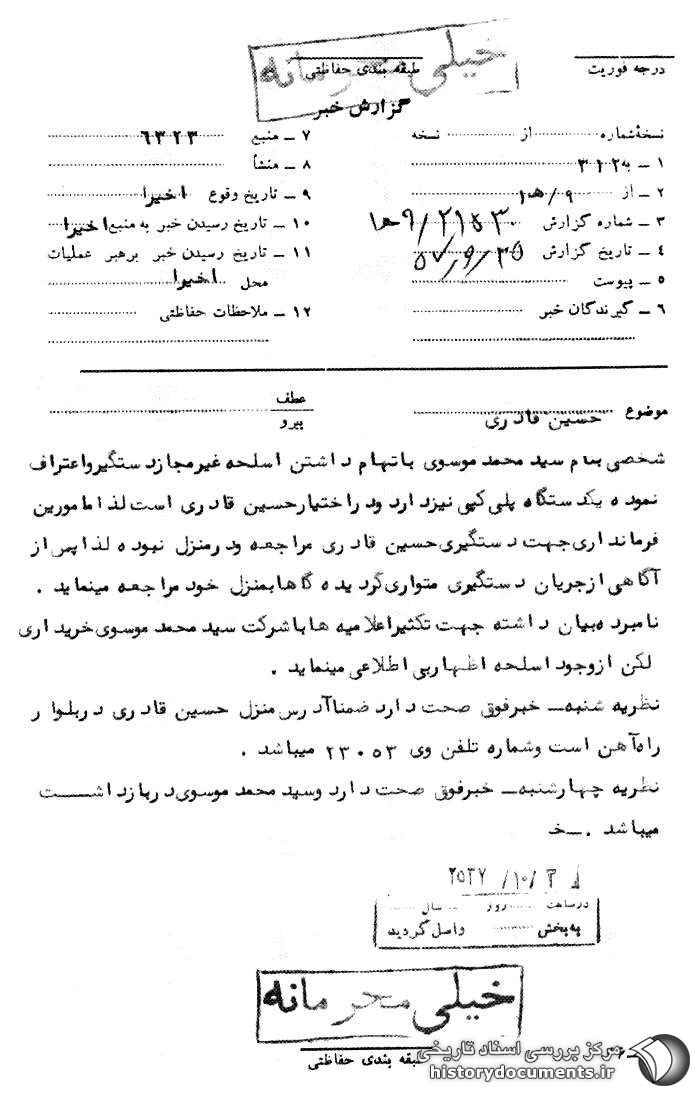 خیلی محرمانه
درجه فوریت
طبقه بندی حفاظتی
گزارش خبر
نسخهٔ شماره از نسخه
۱ ــ به ۳۱۲
۲ ــ از ۹/ه‍
۳ ــ شماره گزارش
۴ ــ تاریخ گزارش ۵۷/۹/۲۵
۵ ــ پیوست
۶ ــ گیرندگان خبر
۷ ــ منبع ۶۳۲۳
۸ ــ منشأ
۹ ــ تاریخ وقوع اخیرا
۱۰ ــ تاریخ رسیدن خبر به منبع اخیرا
۱۱ ــ تاریخ رسیدن خبر برهبر عملیات
محل اخیرا
۱۲ ــ ملاحظات حفاظتی
موضوع حسین قادری
عطف
پیرو
شخصی بنام سید محمد موسوی باتهام داشتن اسلحه غیرمجاز دستگیر واعتراف
نموده یکدستگاه پلی کپی نیزدارد ودراختیارحسین قادری است لذا مامورین
فرمانداری جهت دستگیری حسین قادری مراجعه ودرمنزل نبوده لذا پس از
آگاهی ازجریان دستگیری متواری گردیده گاها بمنزل خود مراجعه مینماید .
نامبرده بیان داشته جهت تکثیراعلامیه هاباشرکت سید محمد موسوی خریداری
لکن ازوجود اسلحه اظهاربی اطلاعی مینماید .
نظریه شنبه ــ خبرفوق صحت دارد ضمناآدرس منزل حسین قادری دربلوار
راه‌آهن است وشماره تلفن وی ۲۳۰۵۳ میباشد .
نظریه چهارشنبه ــ خبرفوق صحت دارد وسید محمد موسوی دربازداشت
میباشد . ــ خ
۲۵۳۷/۱۰/
درساعت روز سال
به‌بخش واصل گردید
خیلی محرمانه
طبقه بندی حفاظتی
مرکز بررسی اسناد تاریخی
historydocuments.ir